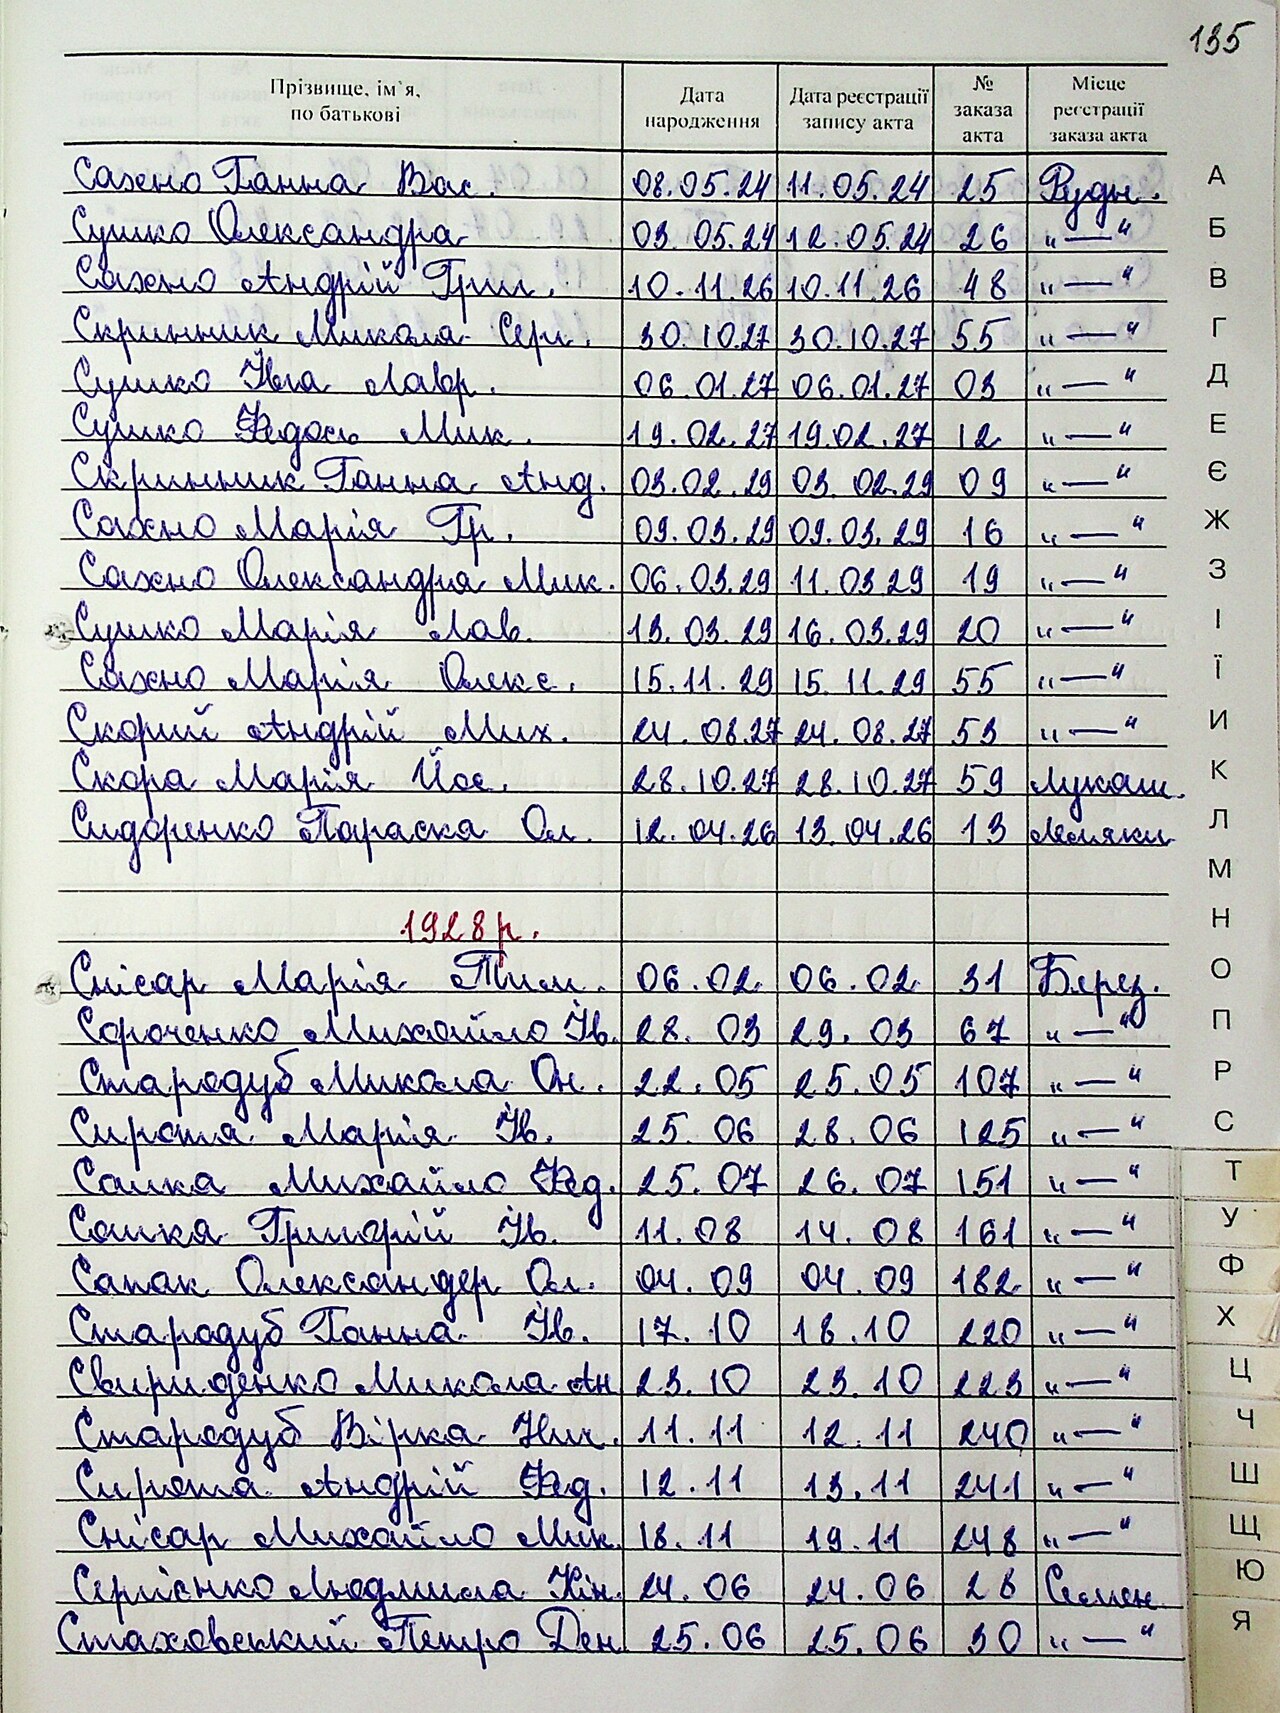 135
Прізвище, ім'я, по батькові | Дата народження | Дата реєстрації запису акта | № заказа акта | Місце реєстрації заказа акта
Сахно Ганна Вас. 08.05.24 11.05.24 25 Рудн.
Сушко Олександра 03.05.24 12.05.24 26 „—“
Сахно Андрій Григ. 10.11.26 10.11.26 48 „—“
Скринник Микола Серг. 30.10.27 30.10.27 55 „—“
Сушко Івга Лавр. 06.01.27 06.01.27 03 „—“
Сушко Федось Мик. 19.02.27 19.02.27 12 „—“
Скринник Ганна Анд. 03.02.29 03.02.29 09 „—“
Сахно Марія Гр. 09.03.29 09.03.29 16 „—“
Сахно Олександра Мик. 06.03.29 11.03.29 19 „—“
Сушко Марія Лав. 13.03.29 16.03.29 20 „—“
Сахно Марія Олекс. 15.11.29 15.11.29 55 „—“
Скорий Андрій Мих. 24.08.27 24.08.27 53 „—“
Скора Марія Йос. 28.10.27 28.10.27 59 Лукаш.
Сидоренко Параска Ол. 12.04.26 13.04.26 13 Лемяки
1928 р.
Снісар Марія Тим. 06.02. 06.02. 31 Берез.
Сороченко Михайло Ів. 28.03 29.03 67 „—“
Стародуб Микола Он. 22.05 25.05 107 „—“
Сирота Марія Ів. 25.06 28.06 125 „—“
Сашка Михайло Фед. 25.07 26.07 151 „—“
Сашка Григорій Ів. 11.08 14.08 161 „—“
Сапак Олександер Ол. 04.09 04.09 182 „—“
Стародуб Ганна Ів. 17.10 18.10 220 „—“
Свириденко Микола Ан 23.10 23.10 223 „—“
Стародуб Вірка Ник. 11.11 12.11 240 „—“
Сирота Андрій Фед. 12.11 13.11 241 „—“
Снісар Михайло Мик. 18.11 19.11 248 „—“
Сергієнко Людмила Кін. 24.06 24.06 28 Семен.
Стаховський Петро Ден 25.06 25.06 30 „—“
А
Б
В
Г
Д
Е
Є
Ж
З
І
Ї
И
К
Л
М
Н
О
П
Р
С
Т
У
Ф
Х
Ц
Ч
Ш
Щ
Ю
Я